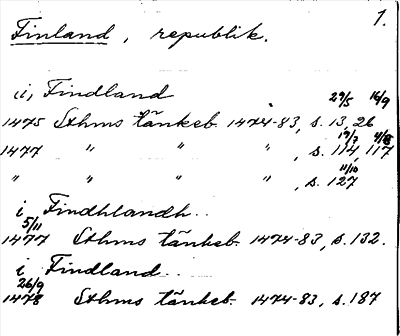 1.
Finland, republik.
i, Findland
29/5 16/9
1475 Sthms tänkeb. 1474-83, s. 13, 26
17/7 4/8
1477 " " " , s. 114, 117
11/10
" " " " , s. 127
i Findhlandh..
5/11
1477 Sthms tänkeb. 1474-83, s. 132.
i Findland..
26/9
1478 Sthms tänkeb. 1474-83, s. 187